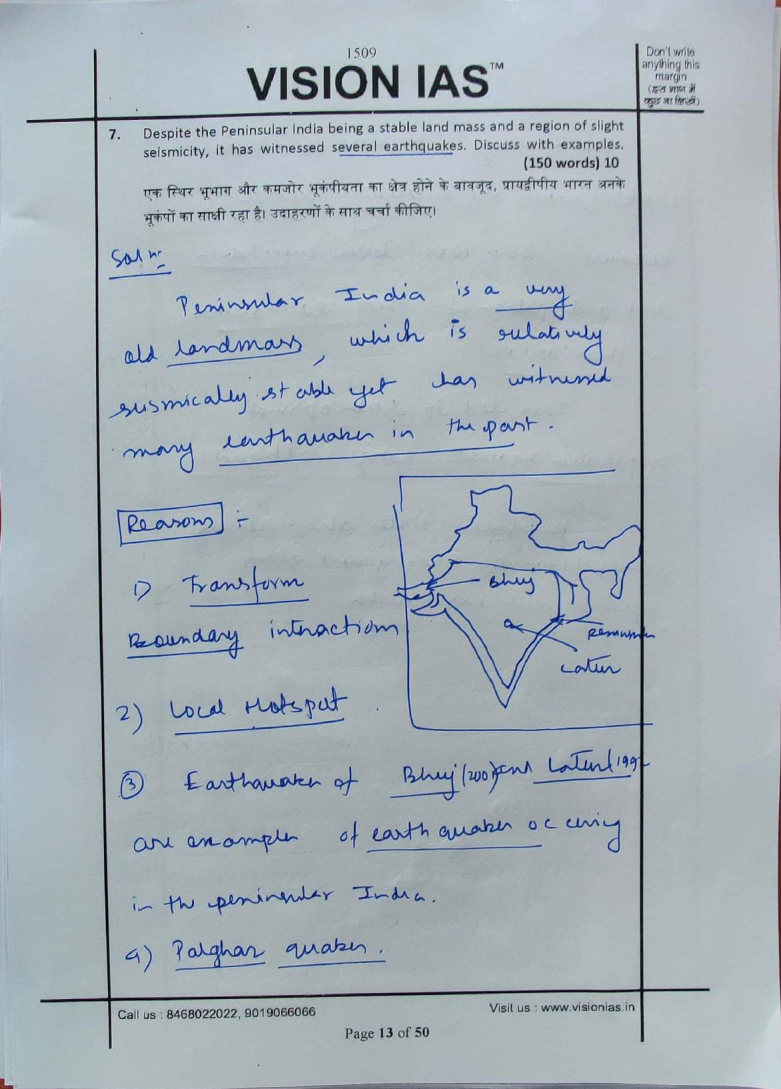 1509
VISION IAS™
Don't write
anything this
margin
(इस भाग में
कुछ ना लिखें)
7. Despite the Peninsular India being a stable land mass and a region of slight
seismicity, it has witnessed several earthquakes. Discuss with examples.
(150 words) 10
एक स्थिर भूभाग और कमजोर भूकंपीयता का क्षेत्र होने के बावजूद, प्रायद्वीपीय भारत अनके
भूकंपों का साक्षी रहा है। उदाहरणों के साथ चर्चा कीजिए।
Solⁿ:
Peninsular India is a very
old landmass, which is relatively
seismically stable yet has witnessed
many earthquakes in the past.
Reasons :-
1) Transform
Boundary interactions
Bhuj
Latur
2) Local Hotspot
3 Earthquakes of Bhuj (2001) and Latur (199
are examples of earthquakes occuring
in the peninsular India.
4) Palghar quakes.
Call us : 8468022022, 9019066066
Visit us : www.visionias.in
Page 13 of 50